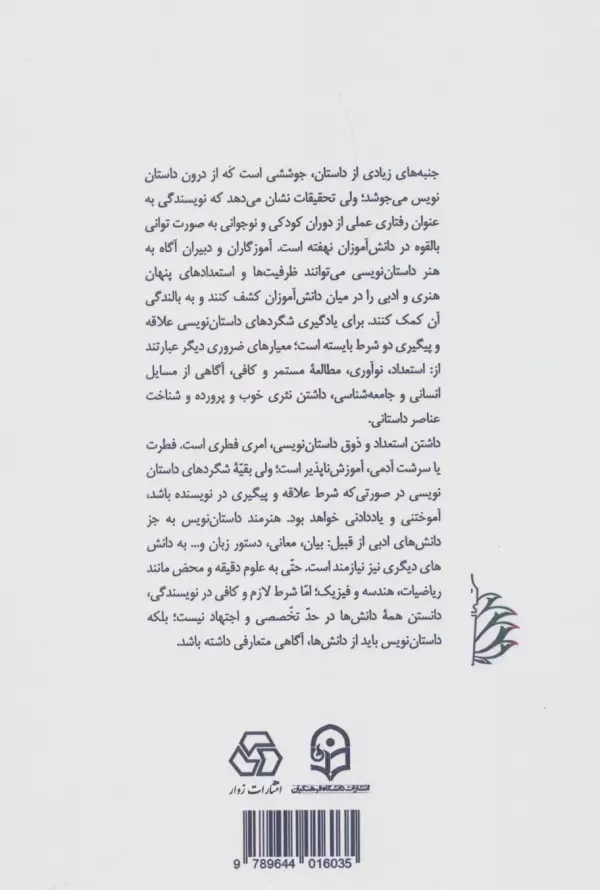 جنبه‌های زیادی از داستان، جوششی است که از درون داستان
نویس می‌جوشد؛ ولی تحقیقات نشان می‌دهد که نویسندگی به
عنوان رفتاری عملی از دوران کودکی و نوجوانی به صورت توانی
بالقوه در دانش‌آموزان نهفته است. آموزگاران و دبیران آگاه به
هنر داستان‌نویسی می‌توانند ظرفیت‌ها و استعدادهای پنهان
هنری و ادبی را در میان دانش‌آموزان کشف کنند و به بالندگی
آن کمک کنند. برای یادگیری شگردهای داستان‌نویسی علاقه
و پیگیری دو شرط بایسته است؛ معیارهای ضروری دیگر عبارتند
از: استعداد، نوآوری، مطالعهٔ مستمر و کافی، آگاهی از مسایل
انسانی و جامعه‌شناسی، داشتن نثری خوب و پرورده و شناخت
عناصر داستانی.
داشتن استعداد و ذوق داستان‌نویسی، امری فطری است. فطرت
یا سرشت آدمی، آموزش‌ناپذیر است؛ ولی بقیّهٔ شگردهای داستان
نویسی در صورتی‌که شرط علاقه و پیگیری در نویسنده باشد،
آموختنی و یاددادنی خواهد بود. هنرمند داستان‌نویس به جز
دانش‌های ادبی از قبیل: بیان، معانی، دستور زبان و... به دانش
های دیگری نیز نیازمند است. حتّی به علوم دقیقه و محض مانند
ریاضیات، هندسه و فیزیک؛ امّا شرط لازم و کافی در نویسندگی،
دانستن همهٔ دانش‌ها در حدّ تخّصصی و اجتهاد نیست؛ بلکه
داستان‌نویس باید از دانش‌ها، آگاهی متعارفی داشته باشد.
انتشارات دانشگاه فرهنگیان
انتشارات زوار
9 789644 016035